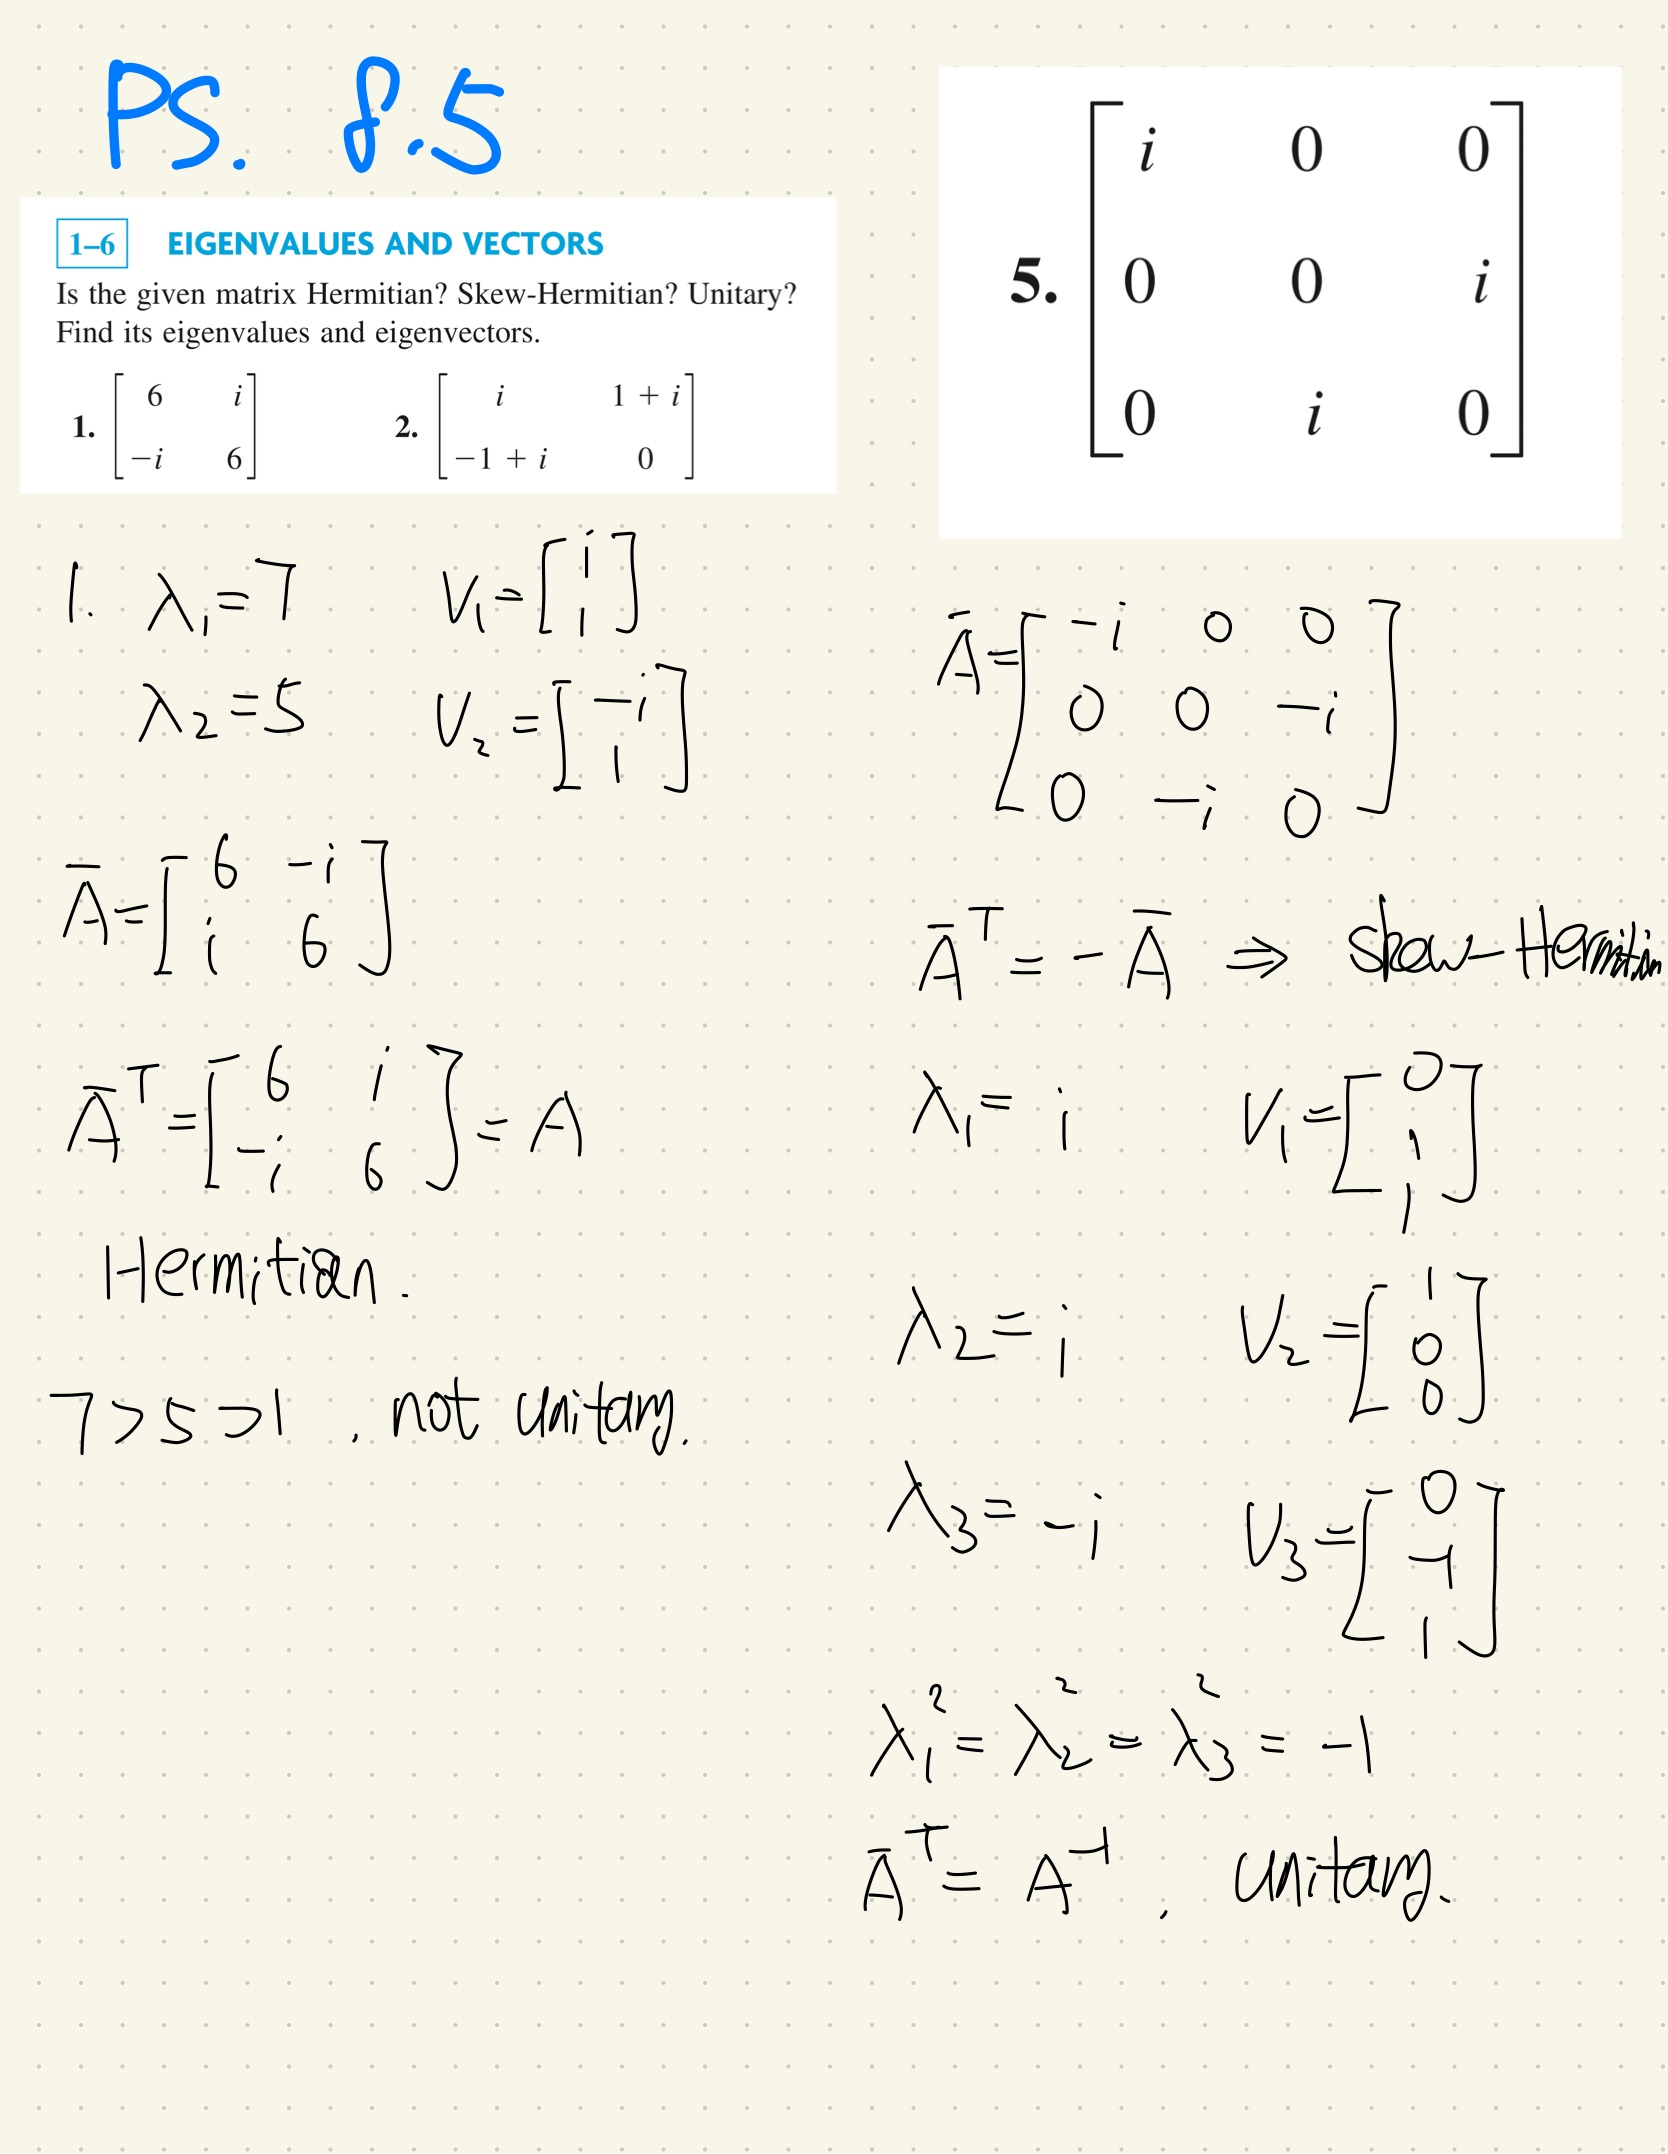 PS. 8.5
1–6 EIGENVALUES AND VECTORS
Is the given matrix Hermitian? Skew-Hermitian? Unitary?
Find its eigenvalues and eigenvectors.
1. [6 i
-i 6]
2. [i 1 + i
-1 + i 0]
1. λ₁=7 V₁=[i
1]
λ₂=5 V₂=[-i
1]
Ā=[6 -i
i 6]
Āᵀ=[6 i
-i 6]=A
Hermitian.
7>5>1, not unitary.
5. [i 0 0
0 0 i
0 i 0]
Ā=[-i 0 0
0 0 -i
0 -i 0]
Āᵀ=-Ā ⇒ skew-Hermitian
λ₁=i V₁=[0
1
1]
λ₂=i V₂=[1
0
0]
λ₃=-i V₃=[0
-1
1]
λ₁²=λ₂²=λ₃²=-1
Āᵀ=A⁻¹, unitary.